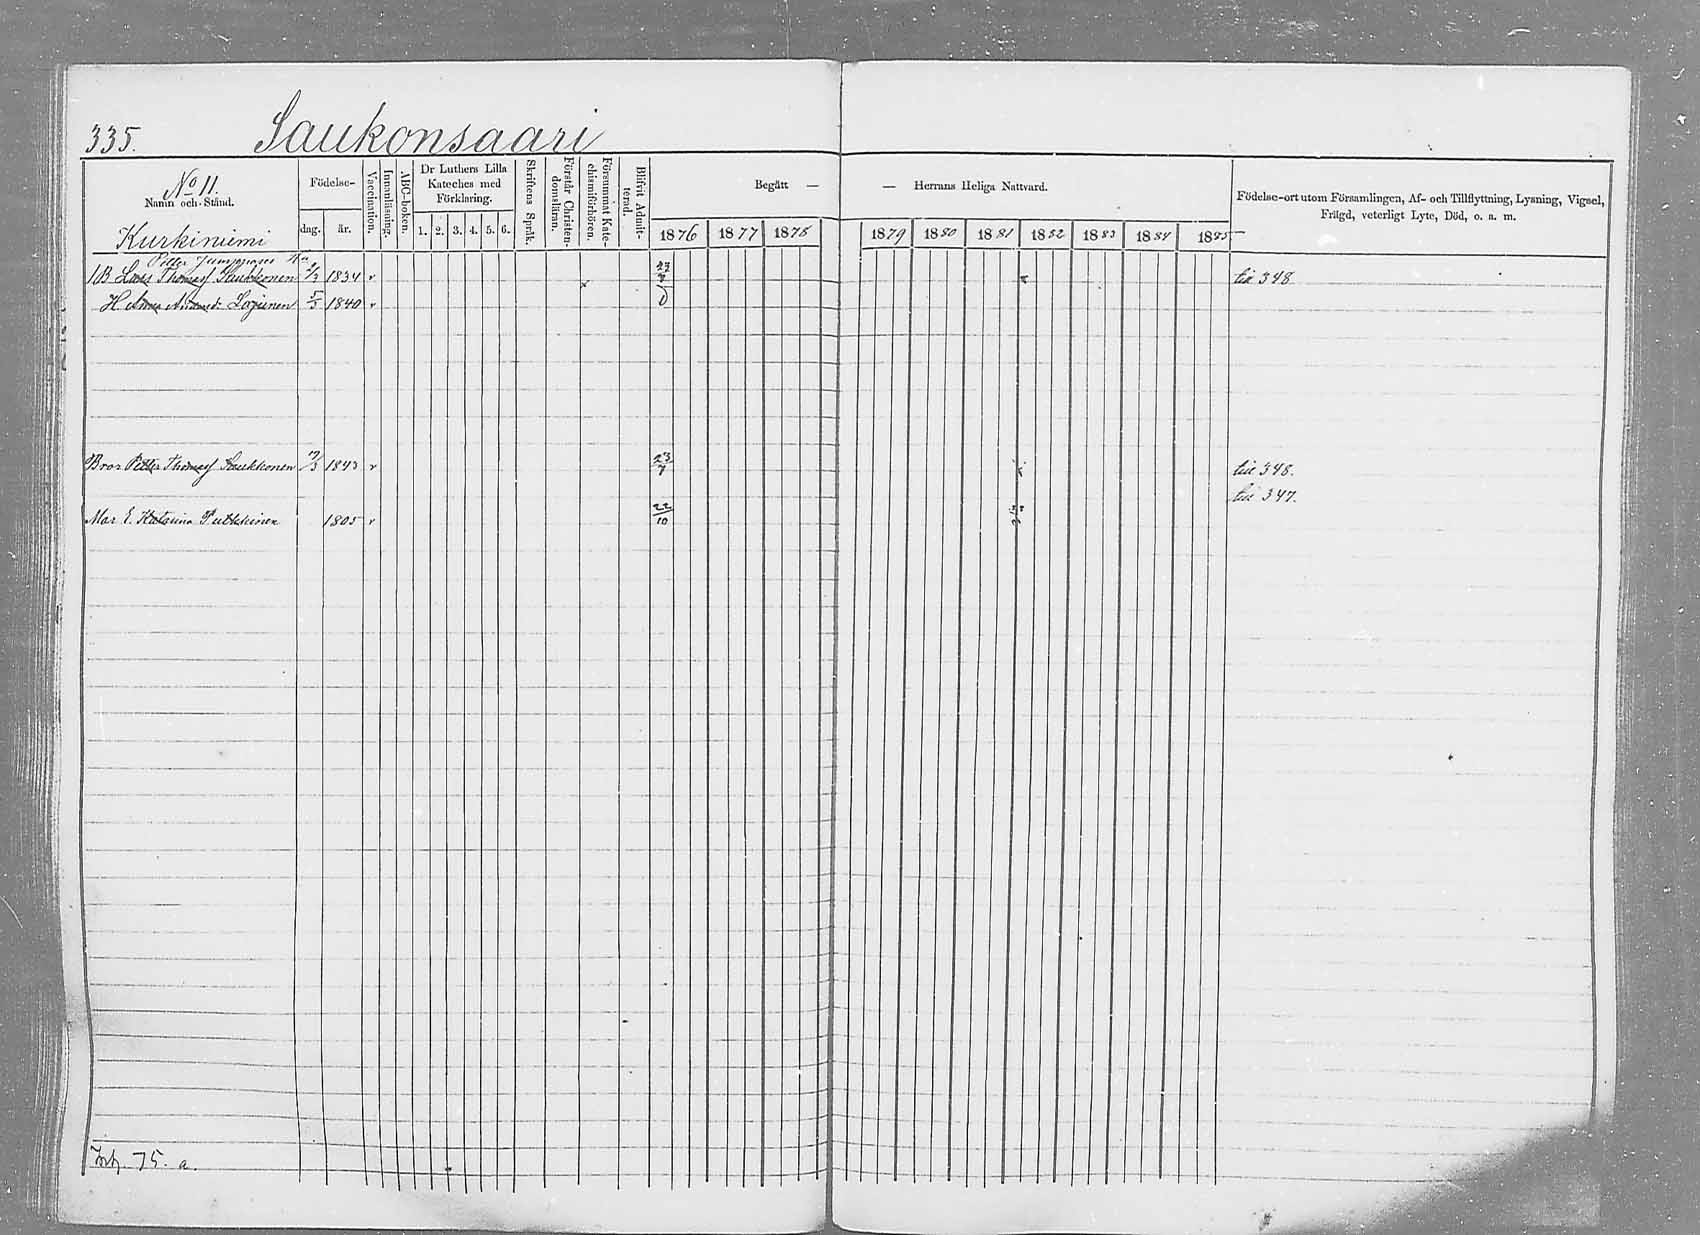 335. Saukonsaari
No 11.
Namn och Stånd.
Kurkiniemi
Födelse-
dag. år.
Vaccination.
Innanläsning.
ABC-boken.
Dr Luthers Lilla
Kateches med
Förklaring.
1. 2. 3. 4. 5. 6.
Skriftens Språk.
Förstår Christen-
domsläran.
Försummat Kate-
chismiförhören.
Blifvit Admit-
terad.
Begått — — Herrans Heliga Nattvard.
1876 1877 1878 1879 1880 1881 1882 1883 1884 1885
Födelse-ort utom Församlingen, Af- och Tillflyttning, Lysning, Vigsel,
Frägd, veterligt Lyte, Död, o. a. m.
Petter
1B Lars Thomasf Saukkonen 1834 v 348
H. Loginen 5/5 1840 v
Bror Petter Thomasf Saukkonen 1843 v 23/7 348.
347.
Mor E. Katarina Pulkkinen 1805 v 22/10
75. a.